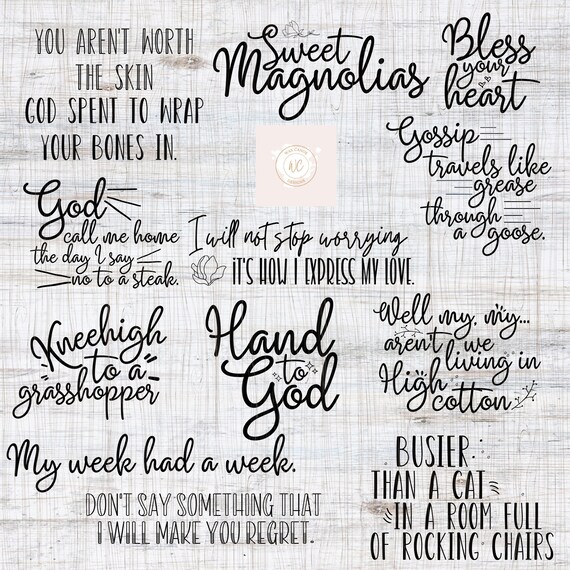 YOU AREN'T WORTH
THE SKIN
GOD SPENT TO WRAP
YOUR BONES IN.
Sweet
Magnolias
Bless
your
heart
WC
Gossip
travels like
grease
through
a goose.
God
call me home
the day I say
no to a steak.
I will not stop worrying
IT'S HOW I EXPRESS MY LOVE.
Kneehigh
to a
grasshopper
Hand
to
God
Well my, my...
aren't we
living in
High
cotton
My week had a week.
DON'T SAY SOMETHING THAT
I WILL MAKE YOU REGRET.
BUSIER
THAN A CAT
IN A ROOM FULL
OF ROCKING CHAIRS